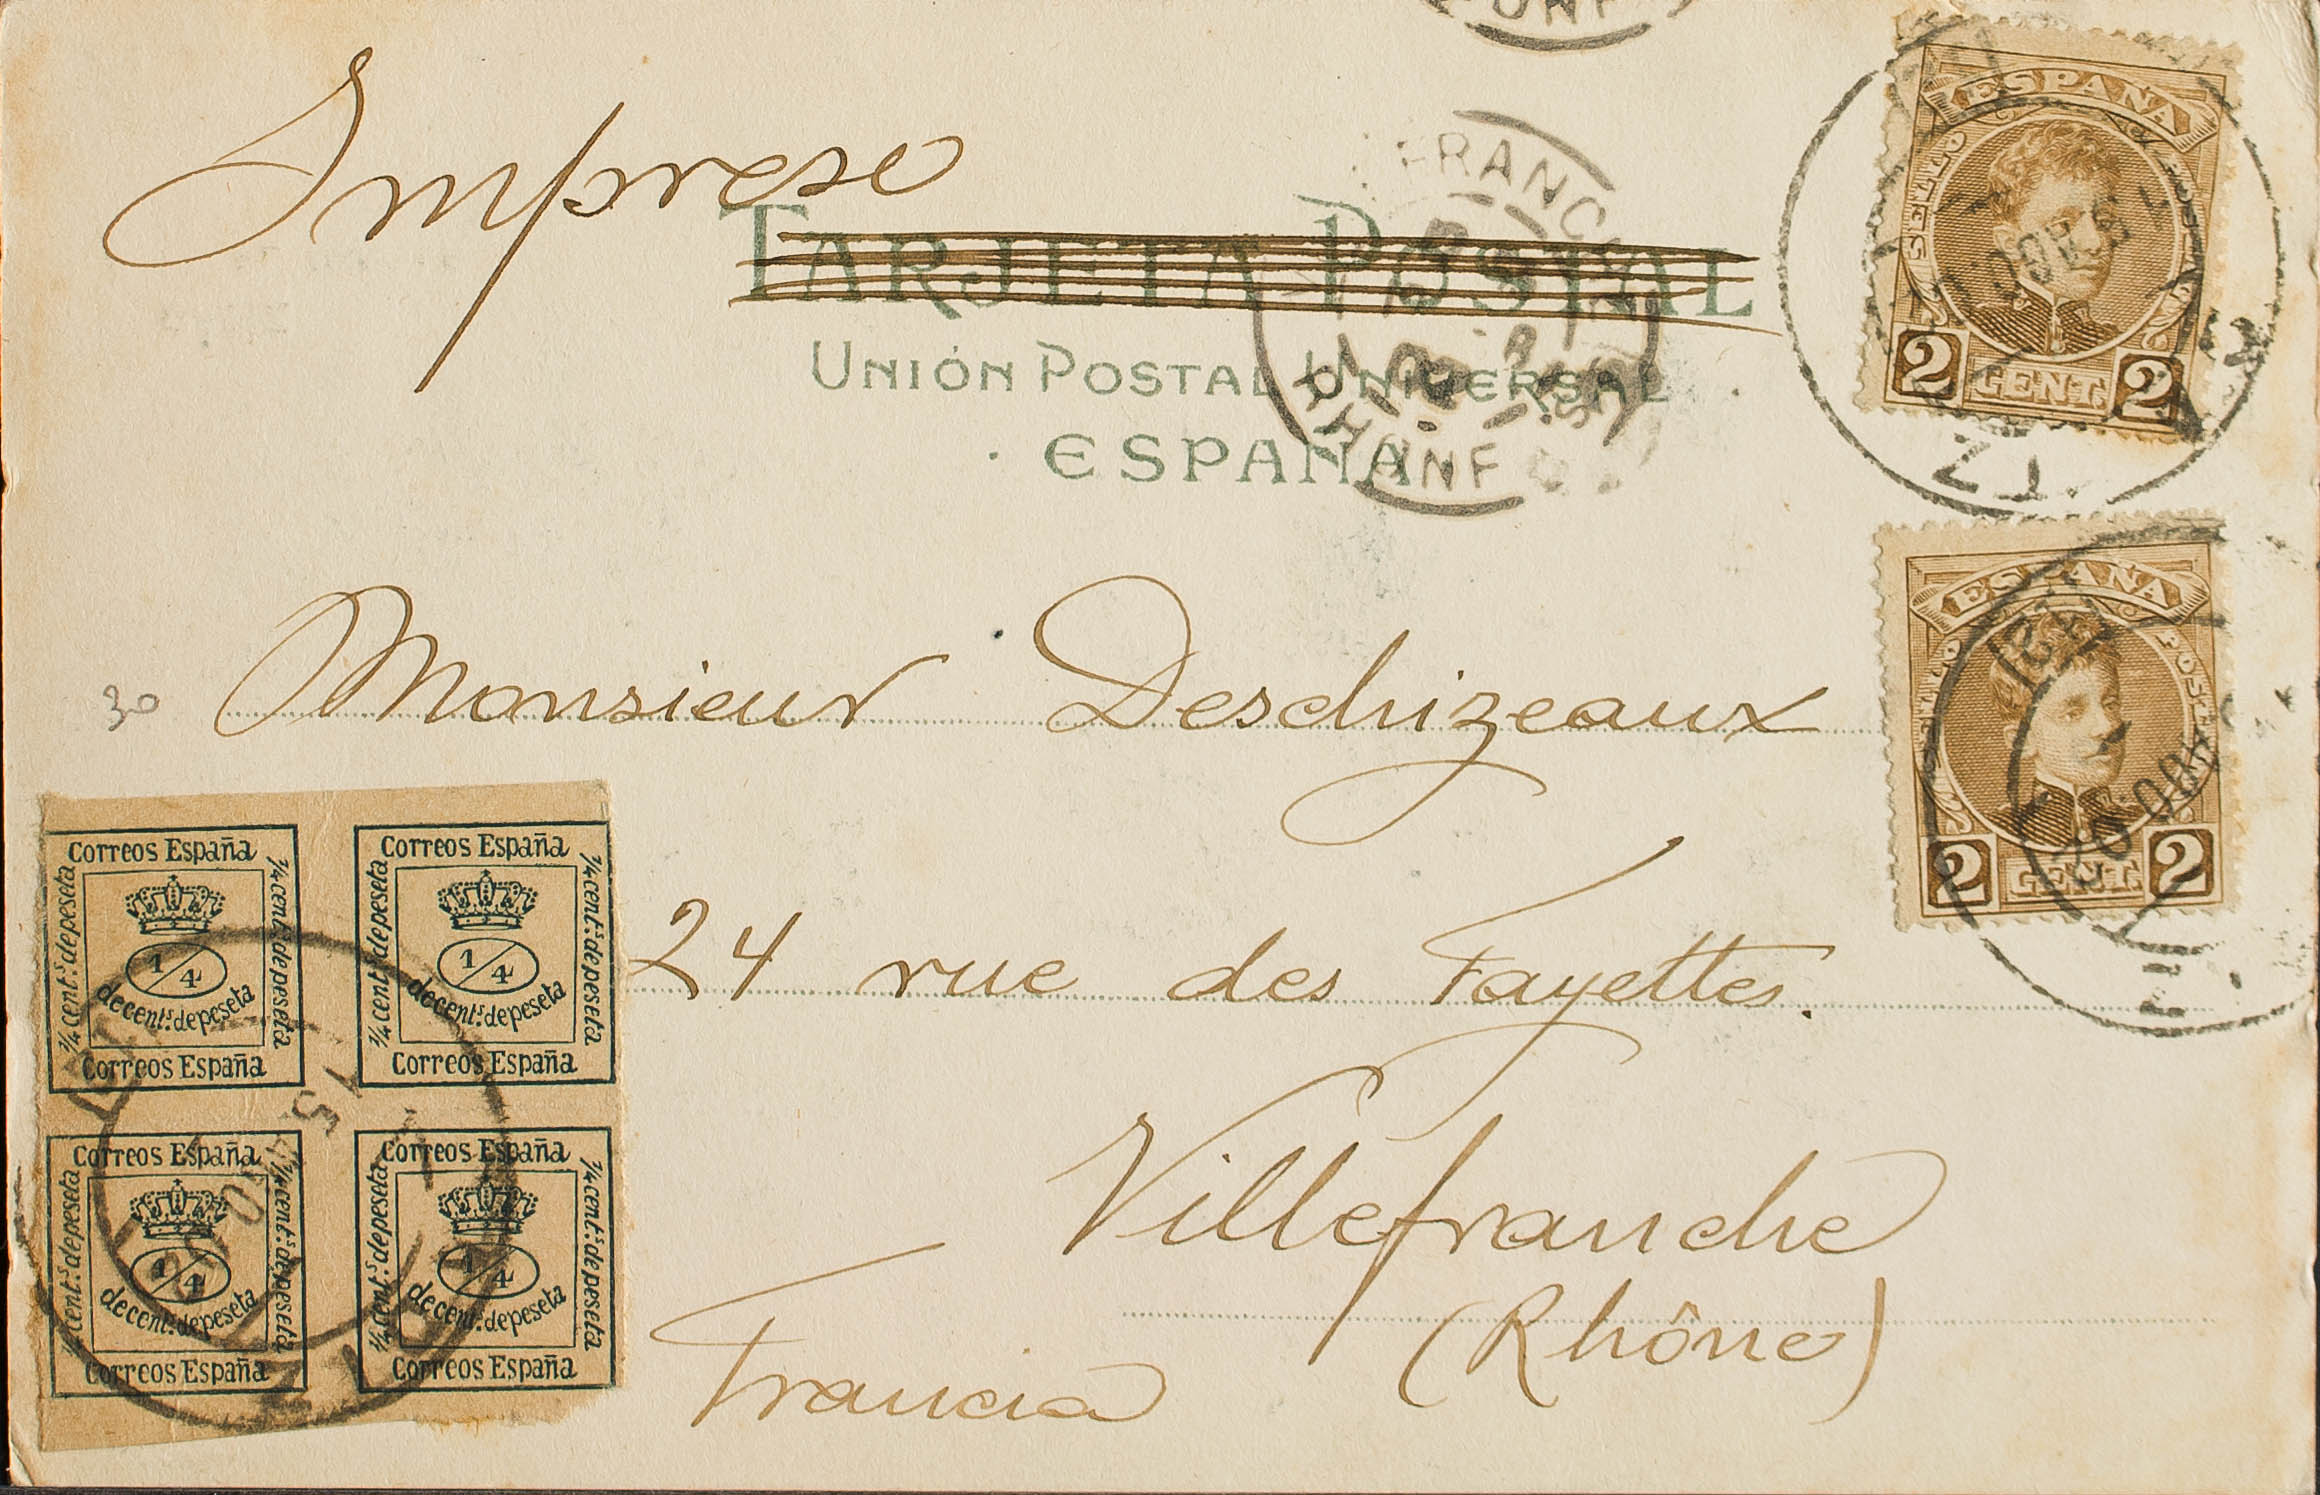 Impreso
TARJETA POSTAL
UNIÓN POSTAL UNIVERSAL
ESPAÑA
ESPAÑA
SELLO
2 CENT. 2
ESPAÑA
2 CENT. 2
30
Monsieur Deschizeaux
24 rue des Fayettes.
Villefranche
(Rhône)
Francia
Correos España
1/4 cent.s de peseta
1/4 cent.s de peseta
1/4
de cent.s de peseta
Correos España
Correos España
1/4 cent.s de peseta
1/4 cent.s de peseta
1/4
de cent.s de peseta
Correos España
Correos España
1/4 cent.s de peseta
1/4 cent.s de peseta
1/4
de cent.s de peseta
Correos España
Correos España
1/4 cent.s de peseta
1/4 cent.s de peseta
1/4
de cent.s de peseta
Correos España